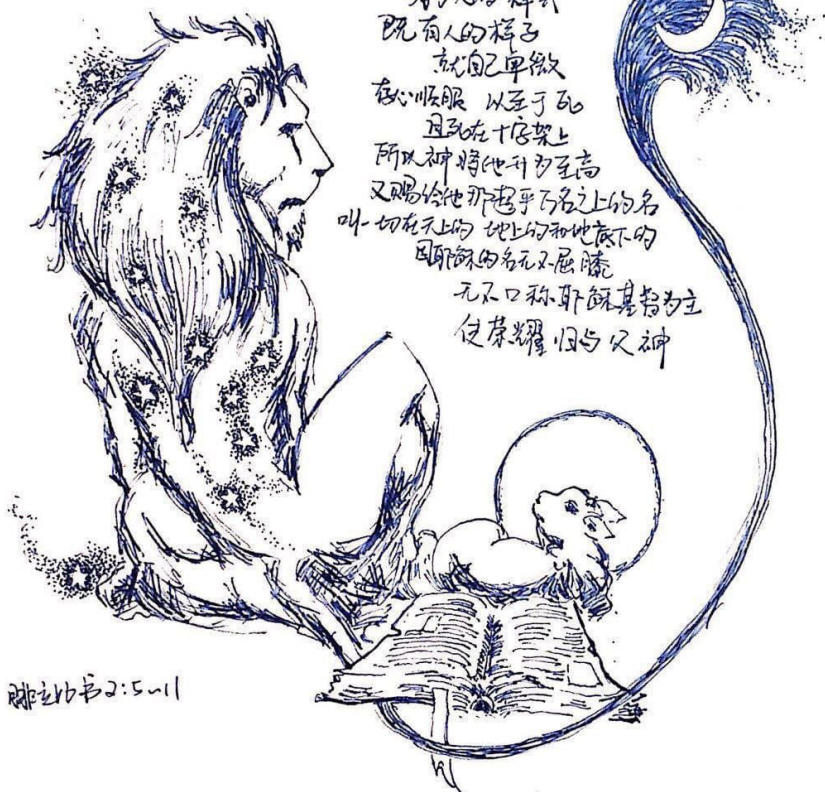 既有人的样子
就自己卑微
存心顺服 以至于死
且死在十字架上
所以神将他升为至高
又赐给他那超乎万名之上的名
叫一切在天上的 地上的和地底下的
因耶稣的名无不屈膝
无不口称耶稣基督为主
使荣耀归与父神
腓立比书2:5~11